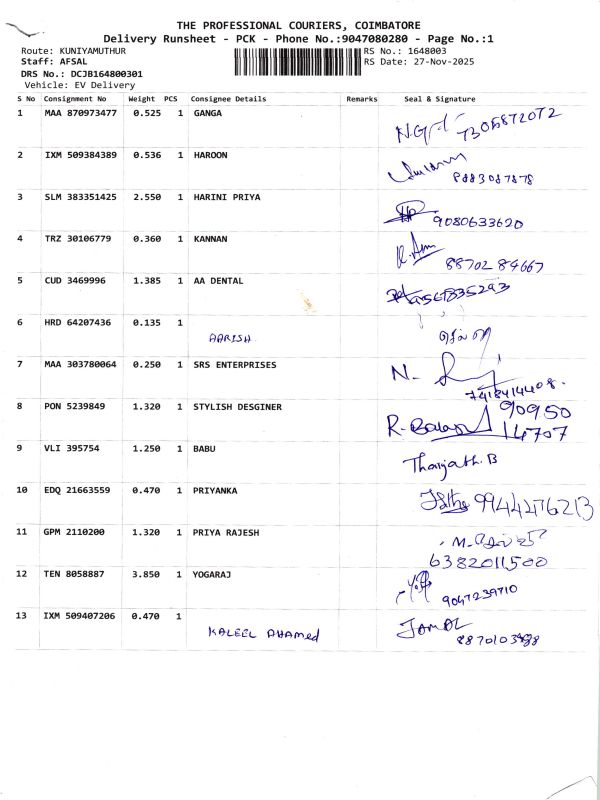 THE PROFESSIONAL COURIERS, COIMBATORE
Delivery Runsheet - PCK - Phone No.:9047080280 - Page No.:1
Route: KUNIYAMUTHUR RS No.: 1648003
Staff: AFSAL RS Date: 27-Nov-2025
DRS No.: DCJB164800301
Vehicle: EV Delivery
S No Consignment No Weight PCS Consignee Details Remarks Seal & Signature
1 MAA 870973477 0.525 1 GANGA
2 IXM 509384389 0.536 1 HAROON
3 SLM 383351425 2.550 1 HARINI PRIYA 9080633620
4 TRZ 30106779 0.360 1 KANNAN 8870284667
5 CUD 3469996 1.385 1 AA DENTAL
6 HRD 64207436 0.135 1 AARISH
7 MAA 303780064 0.250 1 SRS ENTERPRISES N.
8 PON 5239849 1.320 1 STYLISH DESGINER 90950
14707
9 VLI 395754 1.250 1 BABU
10 EDQ 21663559 0.470 1 PRIYANKA 9944476213
11 GPM 2110200 1.320 1 PRIYA RAJESH
6382011500
12 TEN 8058887 3.850 1 YOGARAJ 9047239710
13 IXM 509407206 0.470 1 KALEEL AHAMED JAMAL